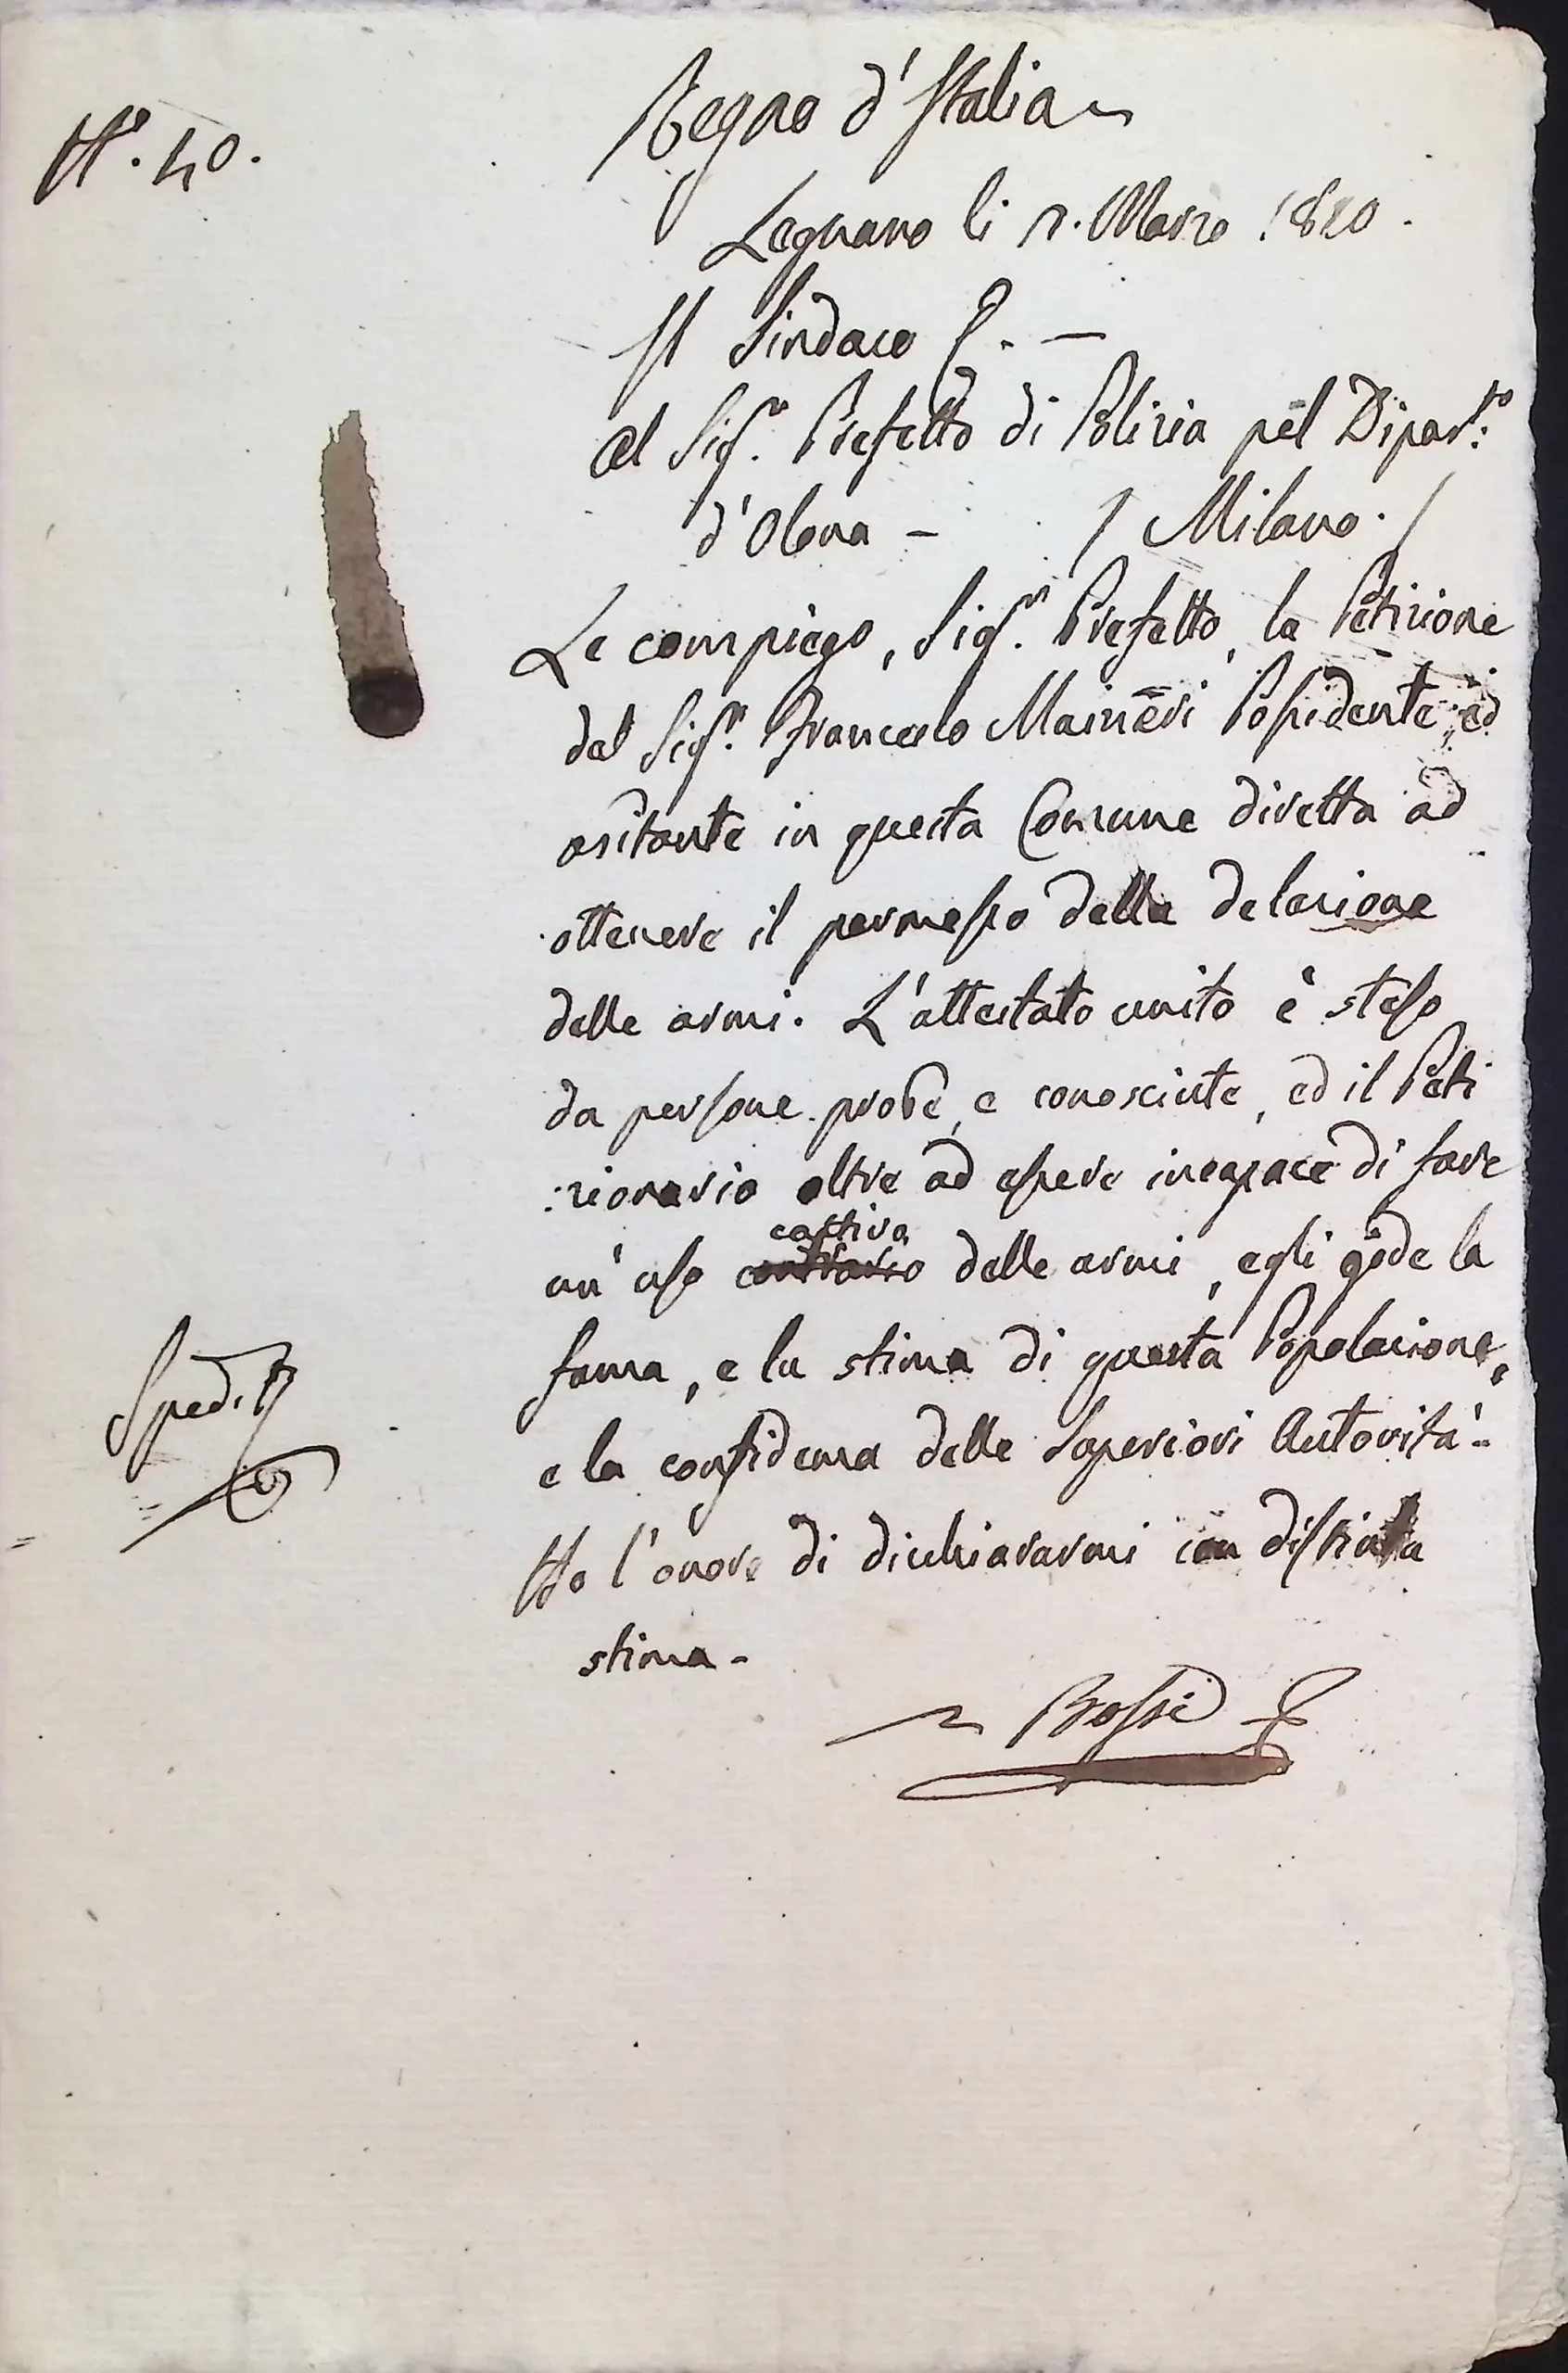 N.° 40.
Regno d'Italia
Legnano li 7. Marzo 1810.
Il Sindaco
Al Sig.r Prefetto di Polizia pel Dipar.to
d'Olona - / Milano. /
Le compiego, Sig.r Prefetto, la Petizione
del Sig.r Francesco Maineri Possidente, ed
abitante in questa Comune diretta ad
ottenere il permesso della delazione
delle armi. L'attestato unito è steso
da persone probe, e conosciute, ed il Peti
:zionario oltre ad essere incapace di fare
cattivo
un'uso contrario delle armi, egli gode la
fama, e la stima di questa Popolazione,
e la confidenza delle Superiori Autorità -
Sped.
Ho l'onore di dichiararmi con distinta
stima -
Bossi